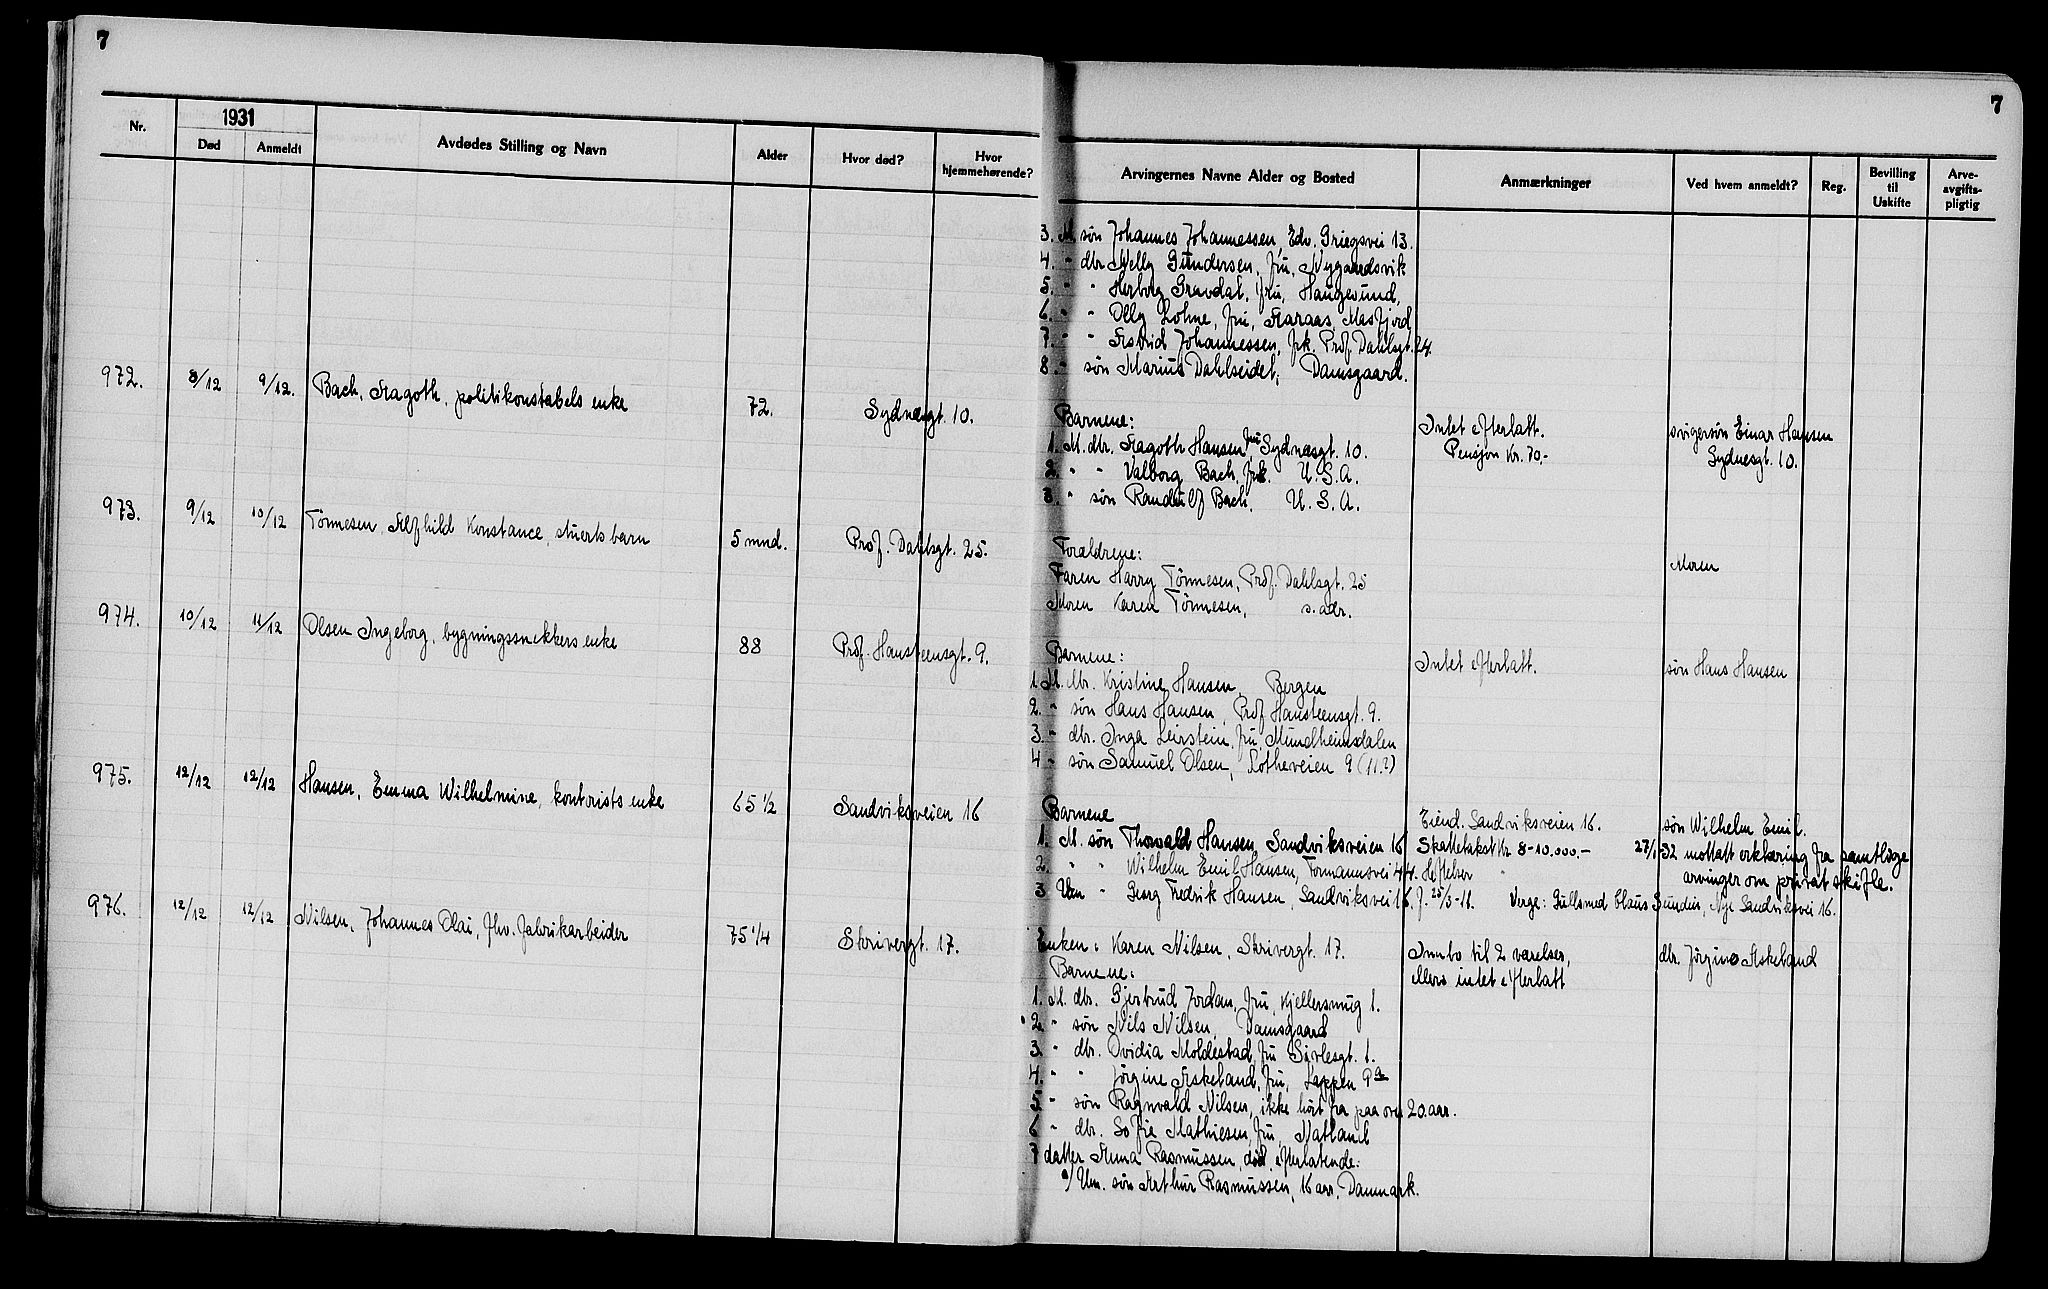 7
7
Nr.
1931
Død
Anmeldt
Avdødes Stilling og Navn
Alder
Hvor død?
Hvor hjemmehørende?
Arvingernes Navne Alder og Bosted
Anmærkninger
Ved hvem anmeldt?
Reg.
Bevilling til Uskifte
Arve-avgifts-pligtig
3. M. søn Johannes Johannessen, Edv. Griegsvei 13.
4. " dtr Nelly Gundersen, fru, Nygaardsvik
5. " " Herborg Gravdal, fru, Haugesund,
6. " " Olly Lohne, fru, Masfjord
7. " " Astrid Johannessen, frk. Prof. Dahlsgt. 24.
8. " søn Marius Dahlseidet, Damsgaard.
972. 8/12 9/12. Bach, Aagoth, politikonstabels enke 72. Sydnesgt. 10.
Barnene:
1. M. dtr. Aagoth Hansen fru Sydnesgt. 10.
2. " " Valborg Bach, frk. U.S.A.
3. " søn Randulf Bach, U.S.A.
Intet efterlatt.
Pensjon Kr. 70,-
svigersøn Einar Hansen
Sydnesgt. 10.
973. 9/12 10/12 Tönnesen, Alfhild Konstance, stuerts barn 5 mnd. Prof. Dahlsgt. 25.
Foraldrene:
Faren Harry Tönnesen, Prof. Dahlsgt. 25
Moren Karen Tönnesen, s. adr.
Moren
974. 10/12 11/12 Olsen Ingeborg, bygningssnekkers enke 88 Prof. Hansteensgt. 9.
Barnene:
1. M. dtr. Kristine Hansen, Bergen
2. " søn Hans Hansen, Prof Hansteensgt. 9.
3. " dtr. Inga Leirstein, fru, Mundheimsdalen
4 " søn Samuel Olsen, Lotheveien 9 (11?)
Intet efterlatt.
søn Hans Hansen
975. 12/12 12/12 Hansen, Emma Wilhelmine, kontorists enke 65 1/2 Sandviksveien 16
Barnene
1. M. søn Thorvald Hansen, Sandviksveien 16
2. " " Wilhelm Emil Hansen, Formannsvei 44.
3 Um " Georg Fredrik Hansen, Sandviksvei 16. f. 25/3-11. Verge: Gullsmed Claus Sundius, Nye Sandviksvei 16.
Eiend. Sandviksveien 16.
Skattetakst Kr 8-10.000.-
Heftelser "
søn Wilhelm Emil.
27/1-32 mottatt erklæring fra samtlige
arvinger om privat skifte.
976. 12/12 12/12 Nilsen, Johannes Olai, fhv. fabrikarbeider 75 1/4 Skrivergt. 17.
Enken: Karen Nilsen, Skrivergt. 17.
Barnene:
1. M. dtr. Gjertrud Jordan, fru, Kjellersmug 1.
2. " søn Nils Nilsen, Damsgaard
3. " dtr. Ovidia Moldestad, fru Sivlesgt. 1.
4. " " Jörgine Askeland, fru, Lappen 9a
5. " søn Ragnvald Nilsen, ikke hört fra paa over 20 aar.
6 " dtr. Sofie Mathiesen, fru, Natland
7 datter Anna Rasmussen, död, efterlatende:
a) Um. søn Arthur Rasmussen, 16 aar, Danmark.
Innbo til 2 værelser,
ellers intet efterlatt
dtr. Jörgine Askeland